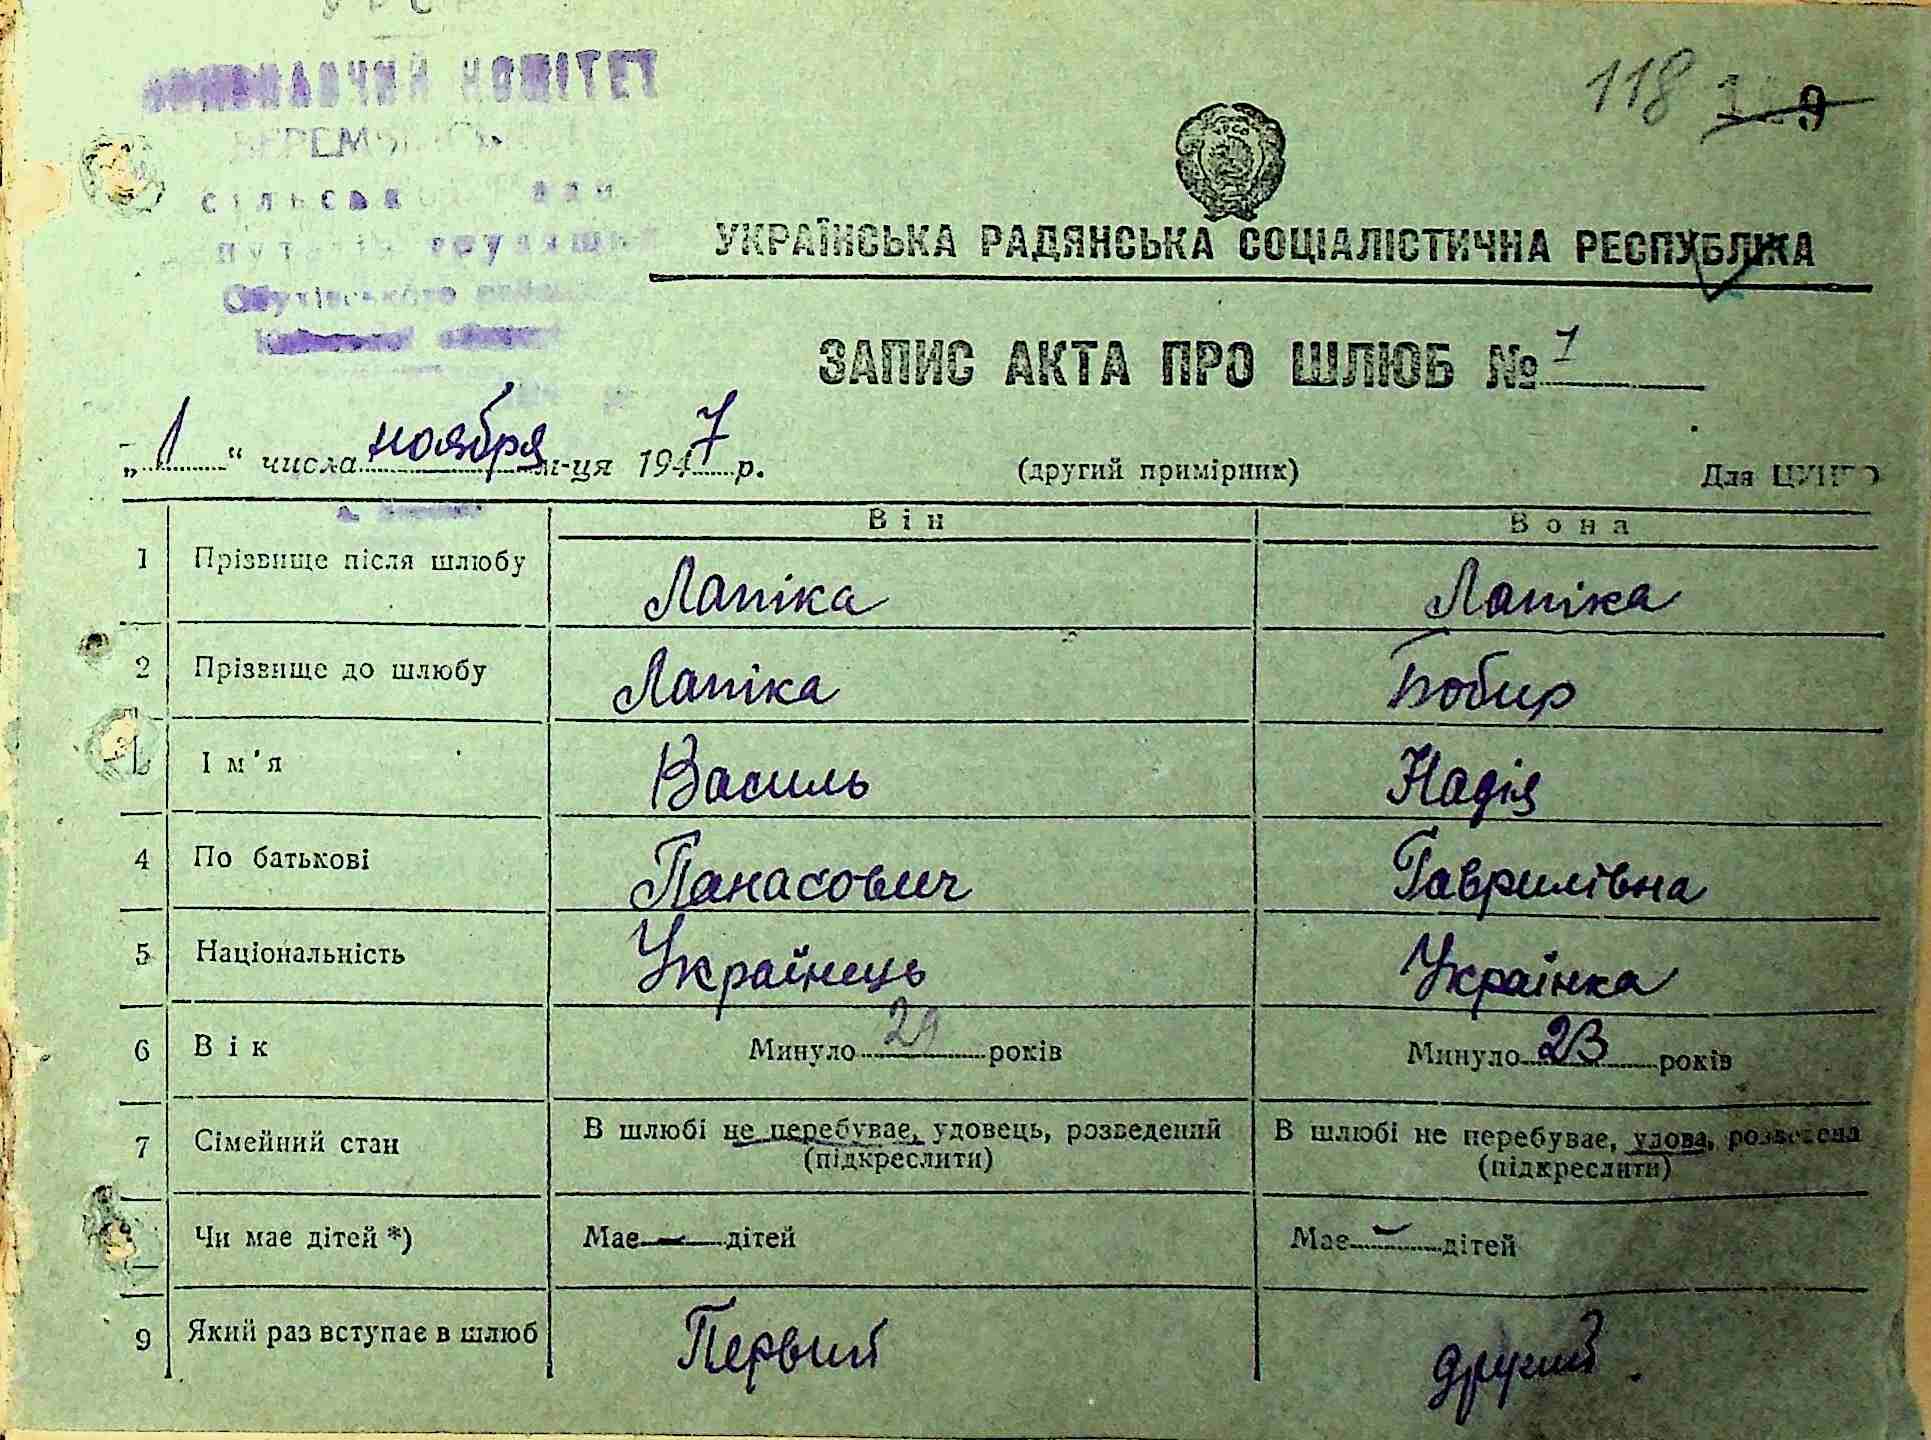 УРСР
ВИКОНАВЧИЙ КОМІТЕТ
118
УКРАЇНСЬКА РАДЯНСЬКА СОЦІАЛІСТИЧНА РЕСПУБЛІКА
ЗАПИС АКТА ПРО ШЛЮБ № 7
„1“ числа ноября м-ця 1947 р. (другий примірник) Для
Він Вона
1 Прізвище після шлюбу Лапіка Лапіка
2 Прізвище до шлюбу Лапіка Бобир
Ім'я Василь Надія
4 По батькові Панасович Гаврилівна
5 Національність Українець Українка
6 Вік Минуло 29 років Минуло 23 років
7 Сімейний стан В шлюбі не перебуває, удовець, розведений В шлюбі не перебуває, удова, розведена
(підкреслити) (підкреслити)
Чи має дітей *) Має – дітей Має – дітей
9 Який раз вступає в шлюб Первий другий.